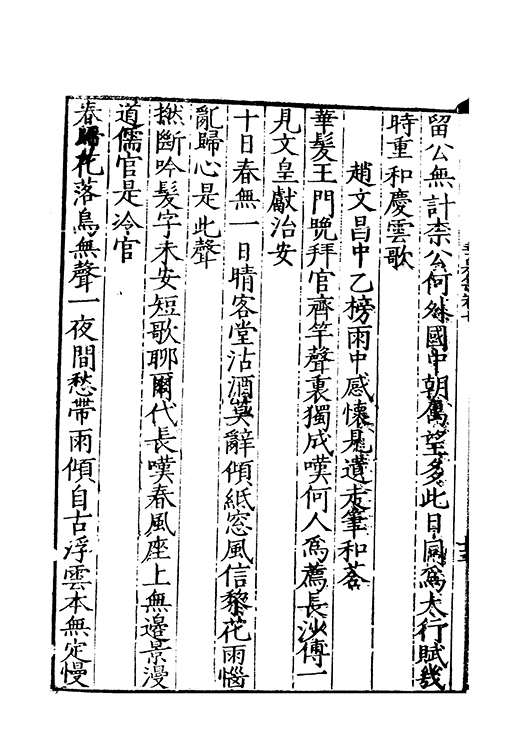 留公無計柰公何殊國中朝屬望多此日同爲太行賦幾
時重和慶雲歌
趙文昌中乙榜雨中感懷見遺走筆和荅
華髮王門晩拜官齊竽聲裏獨成嘆何人爲薦長沙傅一
見文皇獻治安
十日春無一日晴客堂沽酒莫辭傾紙窓風信黎花雨惱
亂歸心是此聲
撚斷吟髮字未安短歌聊爾代長嘆春風座上無邊景漫
道儒官是冷官
春歸花落鳥無聲一夜間愁帶雨傾自古浮雲本無定慢